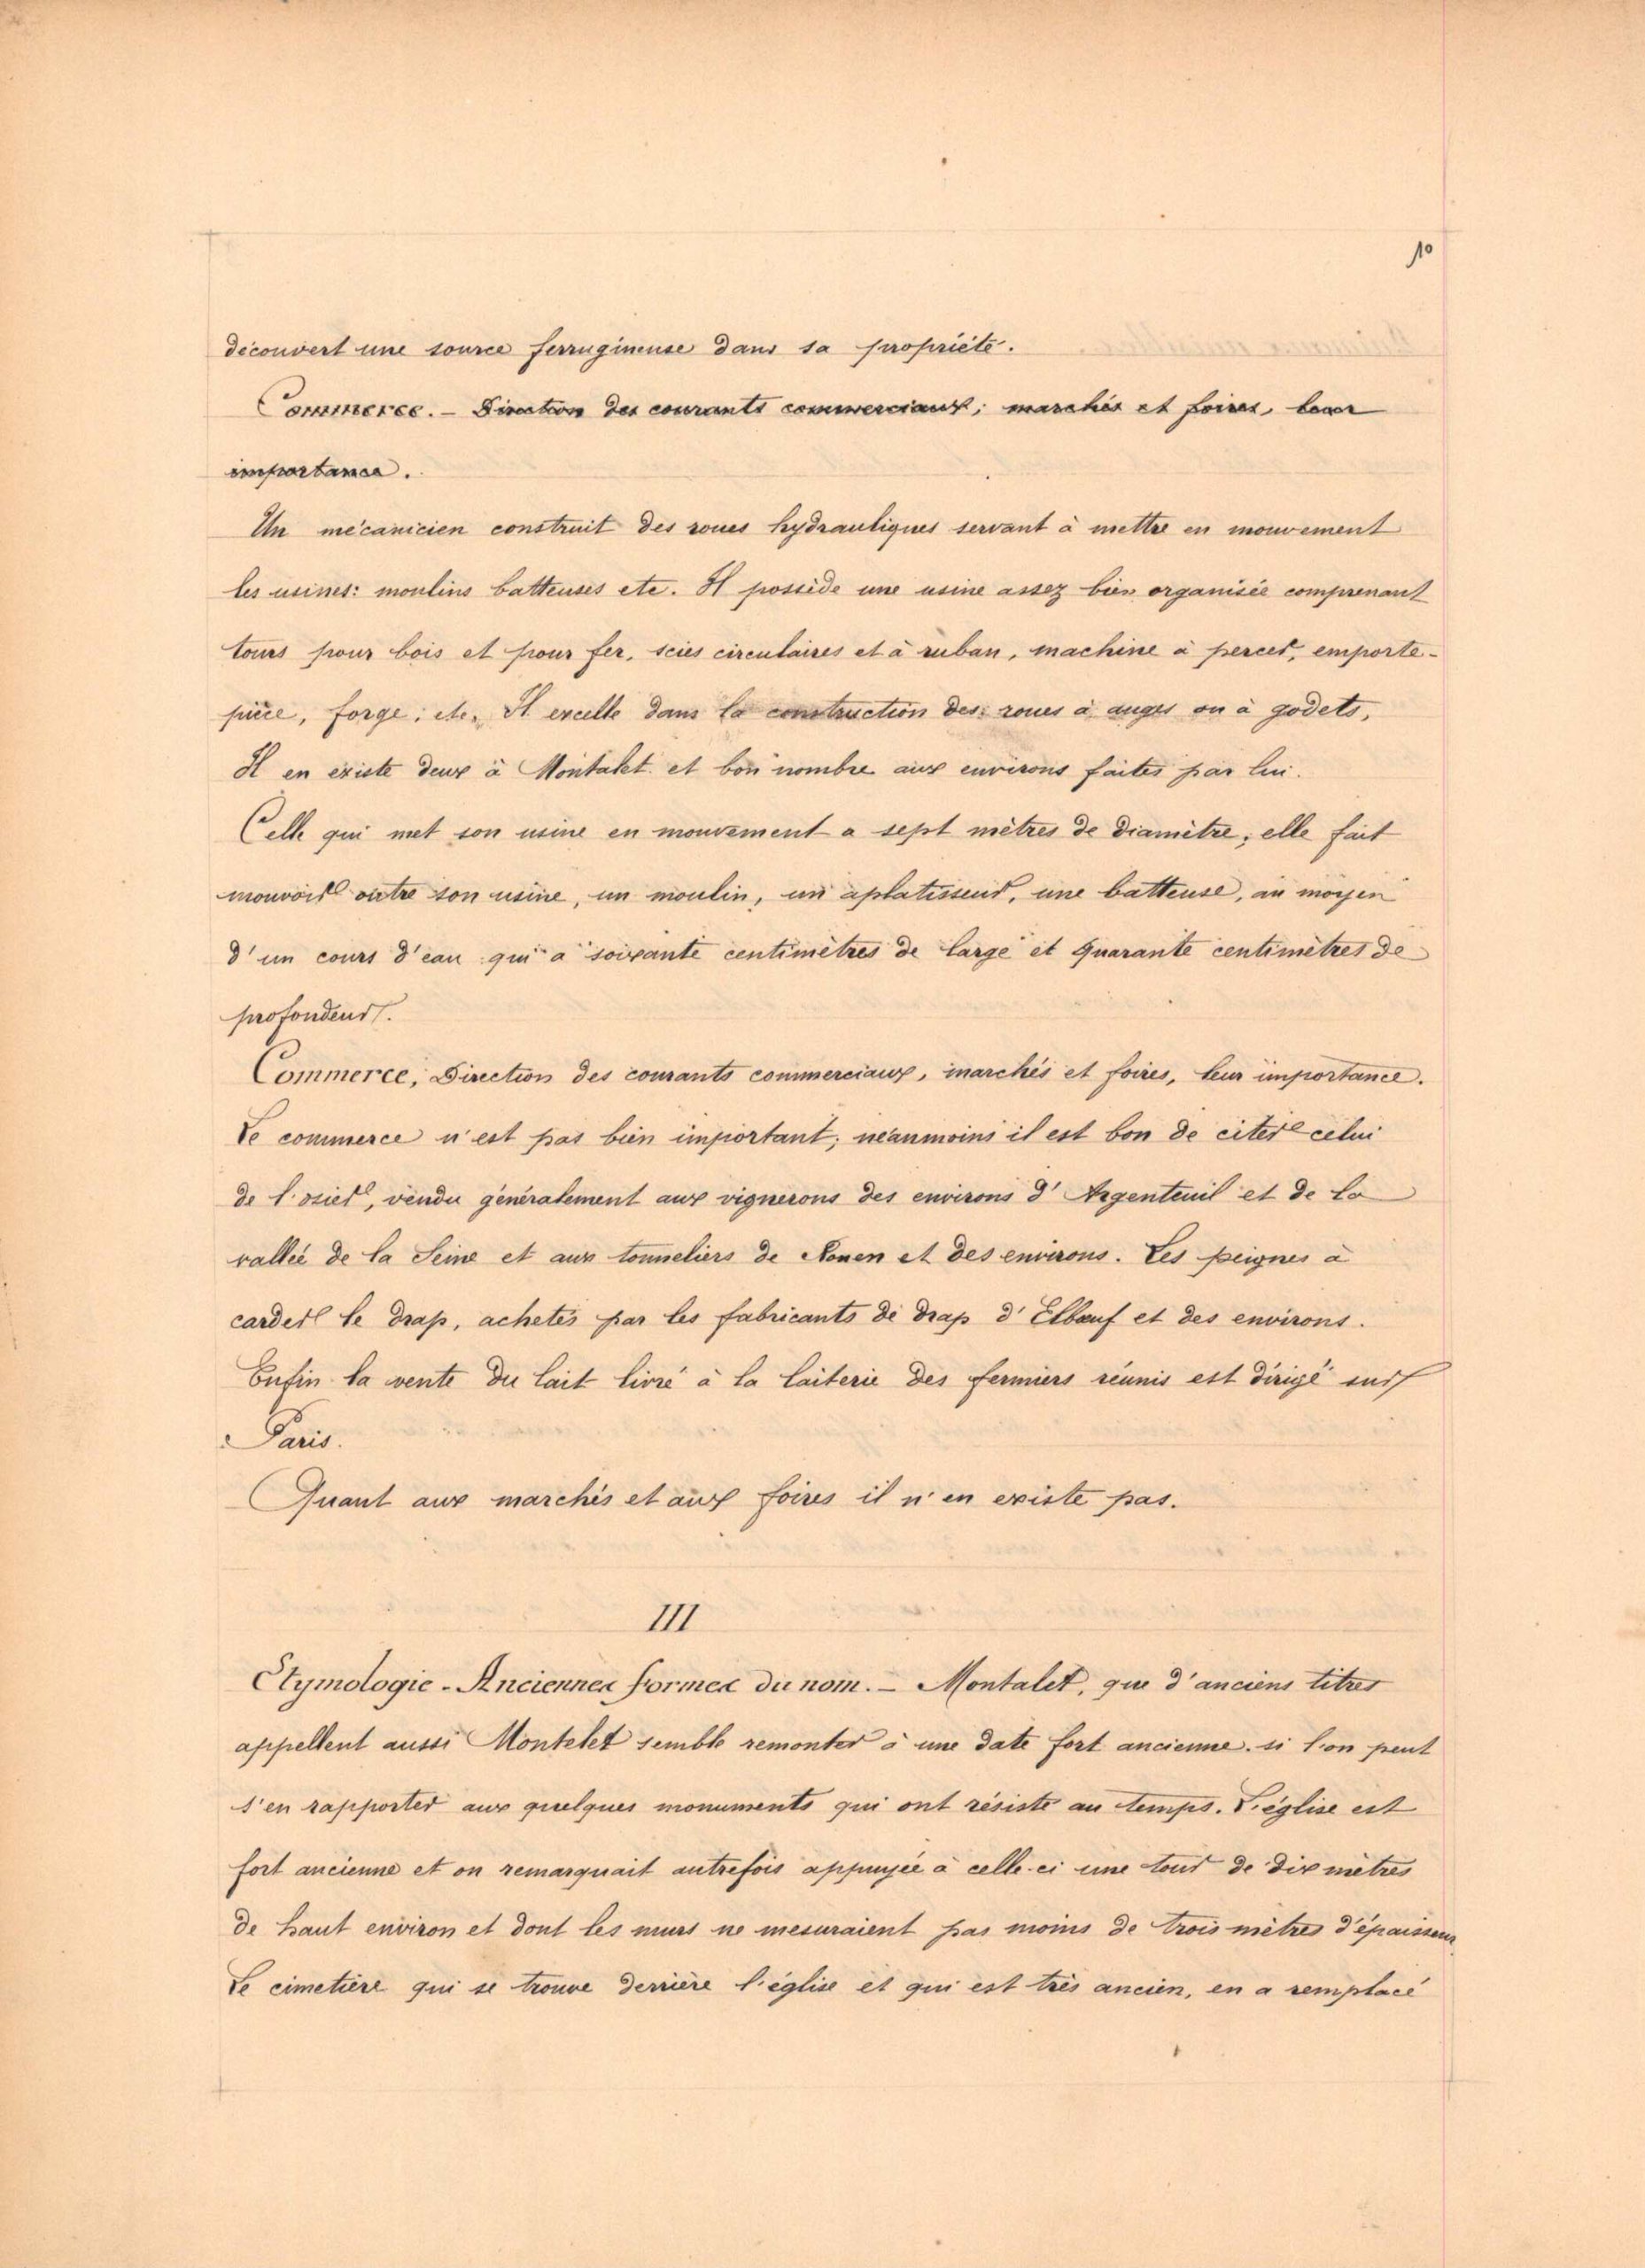 10
découvert une source ferrugineuse dans sa propriété.
Commerce. – Direction des courants commerciaux; marchés et foires, leur
importance.
Un mécanicien construit des roues hydrauliques servant à mettre en mouvement
les usines: moulins batteuses etc. Il possède une usine assez bien organisée comprenant
tours pour bois et pour fer, scies circulaires et à ruban, machine à percer, emporte-
pièce, forge; etc. Il excelle dans la construction des roues à auges ou à godets,
Il en existe deux à Montalet et bon nombre aux environs faites par lui.
Celle qui met son usine en mouvement a sept mètres de diamètre; elle fait
mouvoir outre son usine, un moulin, un aplatisseur, une batteuse, au moyen
d'un cours d'eau qui a soixante centimètres de large et quarante centimètres de
profondeur.
Commerce, Direction des courants commerciaux, marchés et foires, leur importance.
Le commerce n'est pas bien important; néanmoins il est bon de citer celui
de l'osier, vendu généralement aux vignerons des environs d'Argenteuil et de la
vallée de la Seine et aux tonneliers de Rouen et des environs. Les peignes à
carder le drap, achetés par les fabricants de drap d'Elbœuf et des environs.
Enfin la vente du lait livré à la laiterie des fermiers réunis est dirigé sur
Paris.
Quant aux marchés et aux foires il n'en existe pas.
III
Etymologie - Anciennes formes du nom. – Montalet, que d'anciens titres
appellent aussi Montelet semble remonter à une date fort ancienne. si l'on peut
s'en rapporter aux quelques monuments qui ont résisté au temps. L'église est
fort ancienne et on remarquait autrefois appuyée à celle-ci une tour de dix mètres
de haut environ et dont les murs ne mesuraient pas moins de trois mètres d'épaisseur
Le cimetière qui se trouve derrière l'église et qui est très ancien, en a remplacé